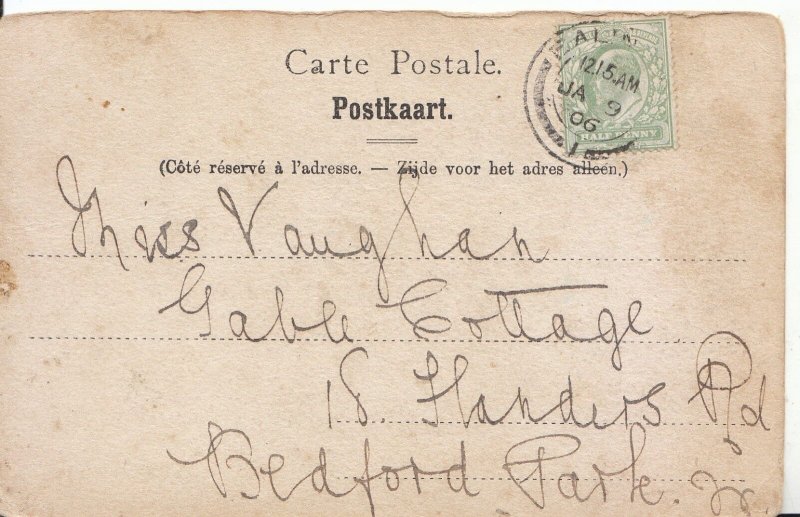 Carte Postale.
Postkaart.
(Côté réservé à l'adresse. — Zijde voor het adres alleen.)
12.15.AM
JA 9
06
HALF PENNY
Miss Vaughan
Gable Cottage
18. Flanders Rd
Bedford Park. W.